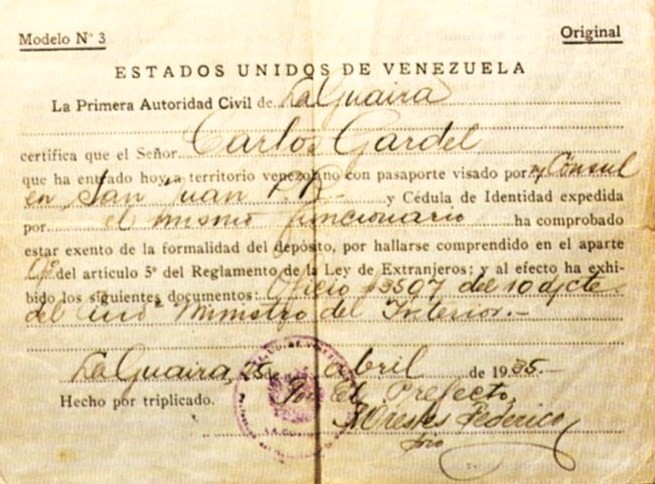 Modelo N° 3
Original
ESTADOS UNIDOS DE VENEZUELA
La Primera Autoridad Civil de La Guaira
Carlos Gardel
certifica que el Señor
que ha entrado hoy a territorio venezolano con pasaporte visado por Cónsul
en San Juan P.R. y Cédula de Identidad expedida
por el mismo funcionario ha comprobado
estar exento de la formalidad del depósito, por hallarse comprendido en el aparte
del artículo 5° del Reglamento de la Ley de Extranjeros; y al efecto ha exhi-
bido los siguientes documentos: Oficio #3507 del 10 d/cte.
del Ministro del Interior.-
La Guaira, 25 de abril de 1935.-
Hecho por triplicado. Por El Prefecto,
Federico